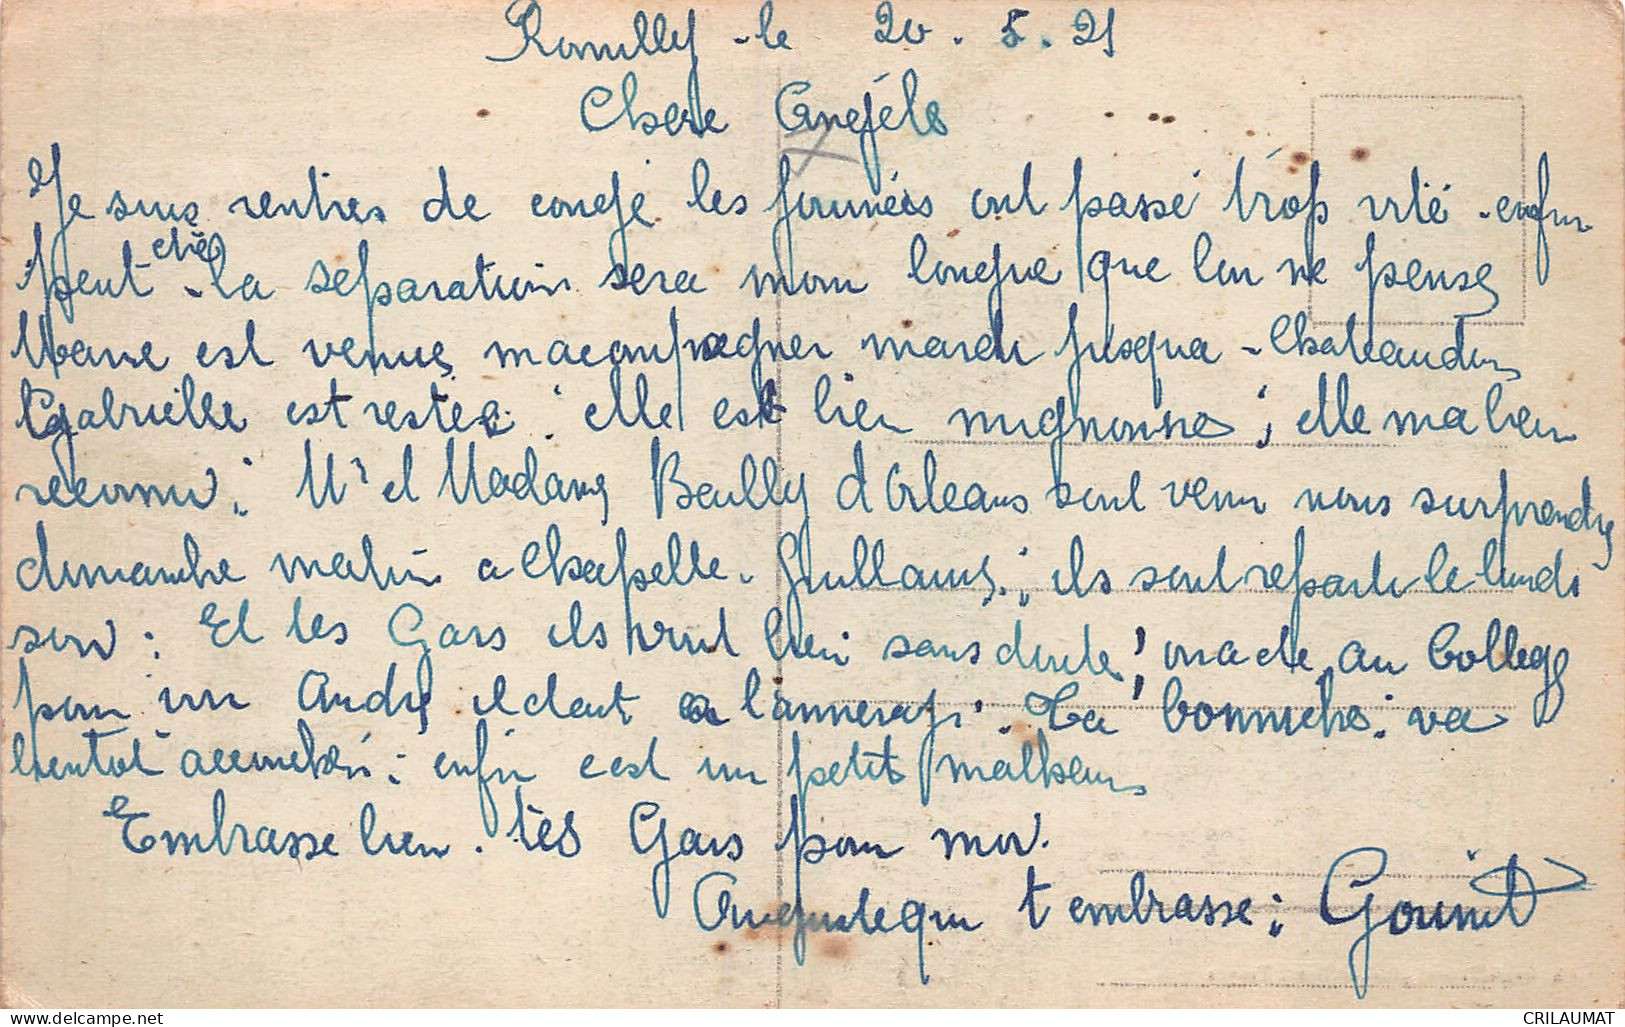 Romilly - le 20 . 5 . 21
Chere Angéle
Je suis rentres de conge les journeés ont passé trop vité - enfin
peut etre - la separation sera moin longue que lon ne pense
Marie est venue macompagner mardi jusqua - Chateaudun
Gabrielle est restee : elle est bien mignonne ; elle ma bien
reconnu ; Mr et Madame Beully d Orleans sont venu nous surprendre
dimanche matin a Chapelle - Guillaume ; ils sont reparti le lundi
soir : Et tes Gars ils vont bien sans doute ! au College
pour un André il doit
bonniche : va
bientot accoucher : enfin c est un petit malheur
Embrasse bien . tes Gars pour moi .
Auguste qui t embrasse ; Gounit
CRILAUMAT